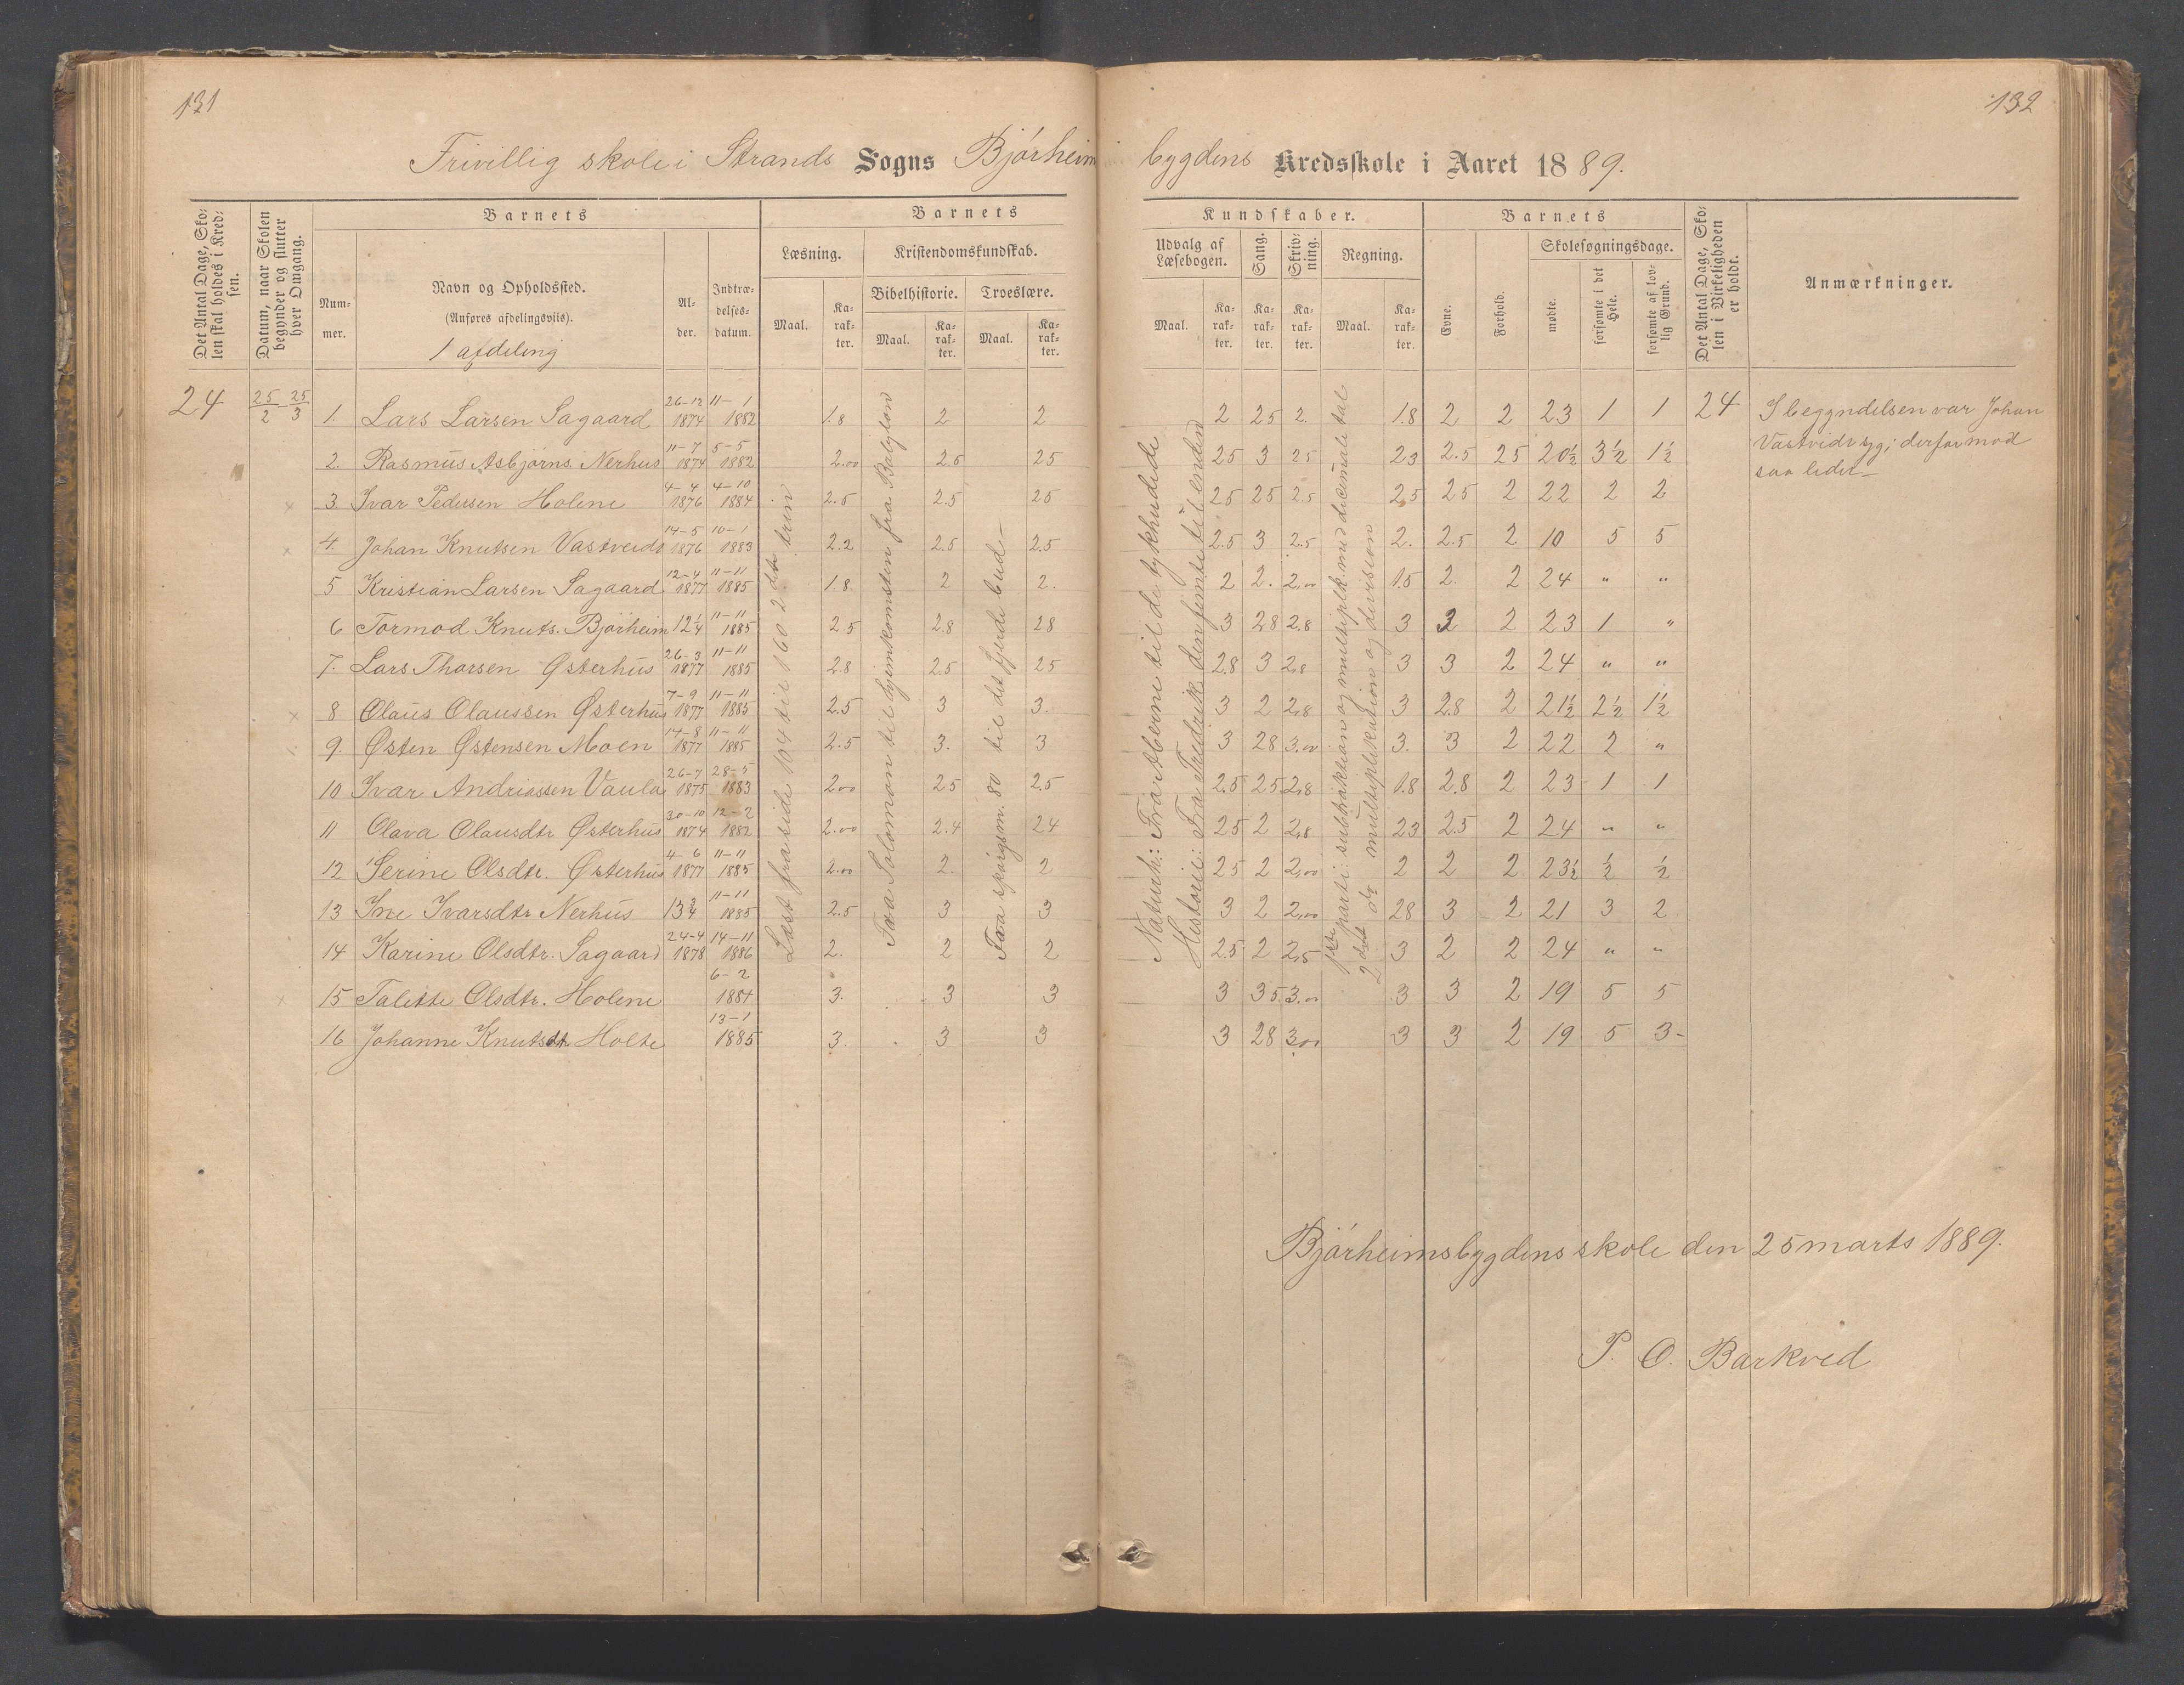 131
132
Frivillig skole i Strands Sogns Bjórheim
bygdens Kredsskole i Aaret 1889.
Det Antal Dage, Sko-
len skal holdes i Kred-
sen.
Datum, naar Skolen
begynder og slutter
hver Omgang.
Barnets
Num-
mer.
Navn og Opholdssted.
(Anføres afdelingsviis).
1 afdeling
Al-
der.
Indtræ-
delses-
datum.
Barnets
Læsning.
Kristendomskundskab.
Bibelhistorie. Troeslære.
Maal. Ka-
rak-
ter.
Maal. Ka-
rak-
ter.
Maal. Ka-
rak-
ter.
Kundskaber.
Udvalg af
Læsebogen.
Sang.
Skriv-
ning.
Regning.
Maal. Ka-
rak-
ter.
Ka-
rak-
ter.
Ka-
rak-
ter.
Maal. Ka-
rak-
ter.
Barnets
Evne.
Forhold.
Skolesøgningsdage.
mødte.
forsømte i det
Hele.
forsømte af lov-
lig Grund.
Det Antal Dage, Sko-
len i Virkeligheden
er holdt.
Anmærkninger.
24 25/2 - 25/3 1. Lars Larsen Sagaard 26-12 1874 11-1 1882 1.8 2 2 2 25 2. 1.8 2 2 23 1 1 24
2. Rasmus Asbjørns. Nerhus 11-7 1874 5-5 1882 2.00 2.5 25 25 3 25 23 2.5 25 20½ 3½ 1½
3. Ivar Pedersen Holene 4-4 1876 4-10 1884 2.5 2.5 25 25 25 2.5 25 25 2 22 2 2
4. Johan Knutsen Vastveidt 14-5 1876 10-1 1883 2.2 2.5 2.5 2.5 3 2.5 2. 2.5 2 10 5 5
5 Kristian Larsen Sagaard 12-4 1877 11-11 1885 1.8 2 2. 2 2. 2,00 1.5 2. 2 24 " "
6 Tormod Knuts. Bjórheim 12¼ 11-11 1885 25 2.8 28 3 28 2.8 3 3 2 23 1 "
7. Lars Thorsen Østerhus 26-3 1877 11-11 1885 28 2.5 25 2.8 3 2,8 3 3 2 24 " "
8 Olaus Olaussen Østerhus 7-9 1877 11-11 1885 2.5 3 3. 3 2 2,8 3 2.8 2 21½ 2½ 1½
9. Østen Østensen Moen 14-8 1877 11-11 1885 2.5 3. 3 3 28 3.00 3. 3 2 22 2 "
10 Ivar Andriassen Vaula 26-7 1875 28-5 1883 200 25 2.5 2.5 25 2,8 1.8 2.8 2 23 1 1
11 Olava Olausdtr Østerhus 30-10 1874 12-2 1882 2.00 2.4 24 25 2 2,8 23 2.5 2 24 " "
12 Serine Olsdtr. Østerhus 4-6 1877 11-11 1885 2.00 2. 2 25 2 2,00 2 2 2 23½ ½ ½
13 Ine Ivarsdtr Nerhus 13¾ 11-11 1885 2.5 3 3 3 2 2,00 28 3 2 21 3 2
14 Karine Olsdtr. Sagaard 24-4 1878 14-11 1886 2. 2 2 2.5 2 2,5 3 2 2 24 " "
15 Talette Olsdtr. Holene 6-2 1884 3. 3 3 3 35 3.00 3 3 2 19 5 5
16 Johanne Knutsdt Holte 13-1 1885 3. 3 3 3 28 3,00 3 3 2 19 5 3-
Læst fra side 104 til 160 2det trin
Fra Solomon til hjemkomsten fra Babylon
Fra spórgsm. 80 til det fjerde bud-
Naturh.: Fra ærterne til de tykhudede
Historie: Fra Fredrik den femte til enden
1ste parti: subtraktion og multiplk. med decimaltal
2det do multiplikation og division
I begyndelsen var Johan
Vastveidt syg; derfor mød
saa lidet
Bjórheimsbygdens skole den 25 marts 1889.
P. O. Barkved